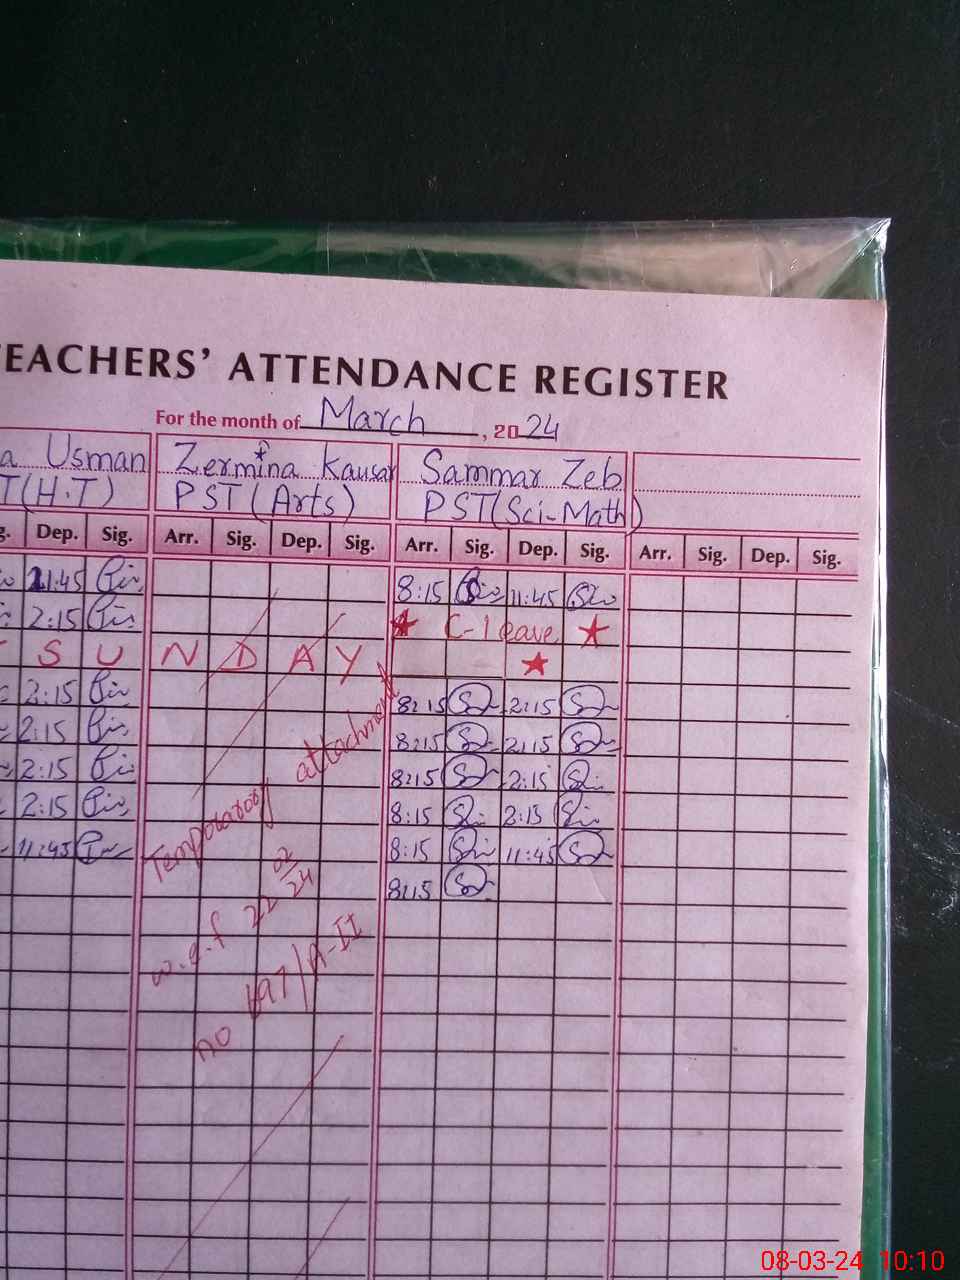 TEACHERS' ATTENDANCE REGISTER
For the month of March, 2024
a Usman Zermina Kausar Sammar Zeb
T(H.T) PST(Arts) PST(Sci-Math)
g. Dep. Sig. Arr. Sig. Dep. Sig. Arr. Sig. Dep. Sig. Arr. Sig. Dep. Sig.
11:45 8:15 11:45
2:15 C-leave
S U N D A Y
2:15 8:15 2:15
2:15 8:15 2:15
2:15 8:15 2:15
2:15 8:15 2:15
11:45 8:15 11:45
8:15
Temporary attachment
w.e.f 22 02/24
no 697/A-II
08-03-24 10:10